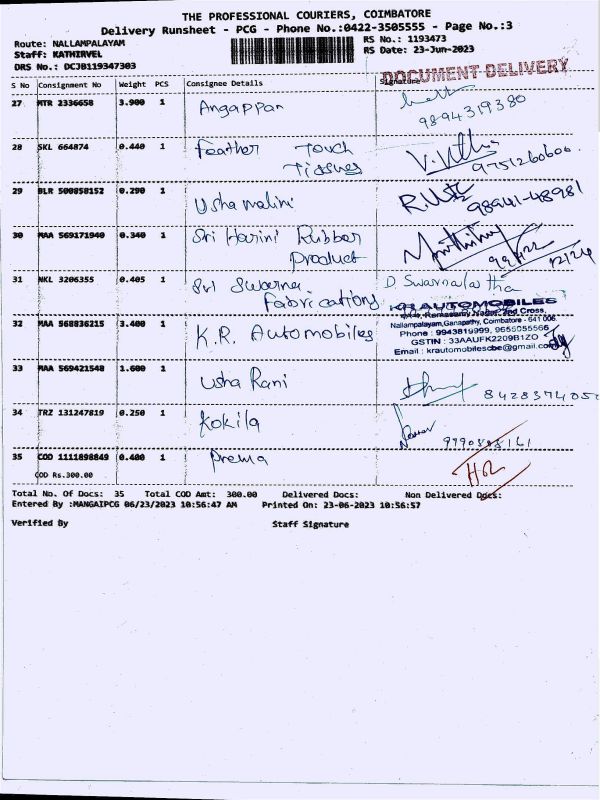 THE PROFESSIONAL COURIERS, COIMBATORE
Delivery Runsheet - PCG - Phone No.:0422-3505555 - Page No.:3
Route: NALLAMPALAYAM RS No.: 1193473
Staff: KATHIRVEL RS Date: 23-Jun-2023
DRS No.: DCJB119347303
DOCUMENT DELIVERY
S No Consignment No Weight PCS Consignee Details Signature
27 MTR 2336658 3.900 1 Angappan
9894319380
28 SKL 664874 0.440 1 Feather Touch
Tissues 9751260600
29 BLR 500858152 0.290 1 Usha malini 98941-48981
30 MAA 569171940 0.340 1 Sri Harini Rubber
Product
31 NKL 3206355 0.405 1 Sri Swarna D Swarnalatha
Fabrications
KR AUTOMOBILES
Ramasamy Nagar, 2nd Cross,
32 MAA 568836215 3.400 1 K.R. Automobiles
Nallampalayam, Ganapathy, Coimbatore - 641 006.
Phone : 9943819999, 9655055566
GSTIN : 33AAUFK2209B1ZO
Email : krautomobilescbe@gmail.com
33 MAA 569421548 1.600 1 Usha Rani
34 TRZ 131247819 0.250 1 Kokila
35 COD 1111898849 0.400 1 Prema
COD Rs.300.00
Total No. Of Docs: 35 Total COD Amt: 300.00 Delivered Docs: Non Delivered Docs:
Entered By :MANGAIPCG 06/23/2023 10:56:47 AM Printed On: 23-06-2023 10:56:57
Verified By Staff Signature